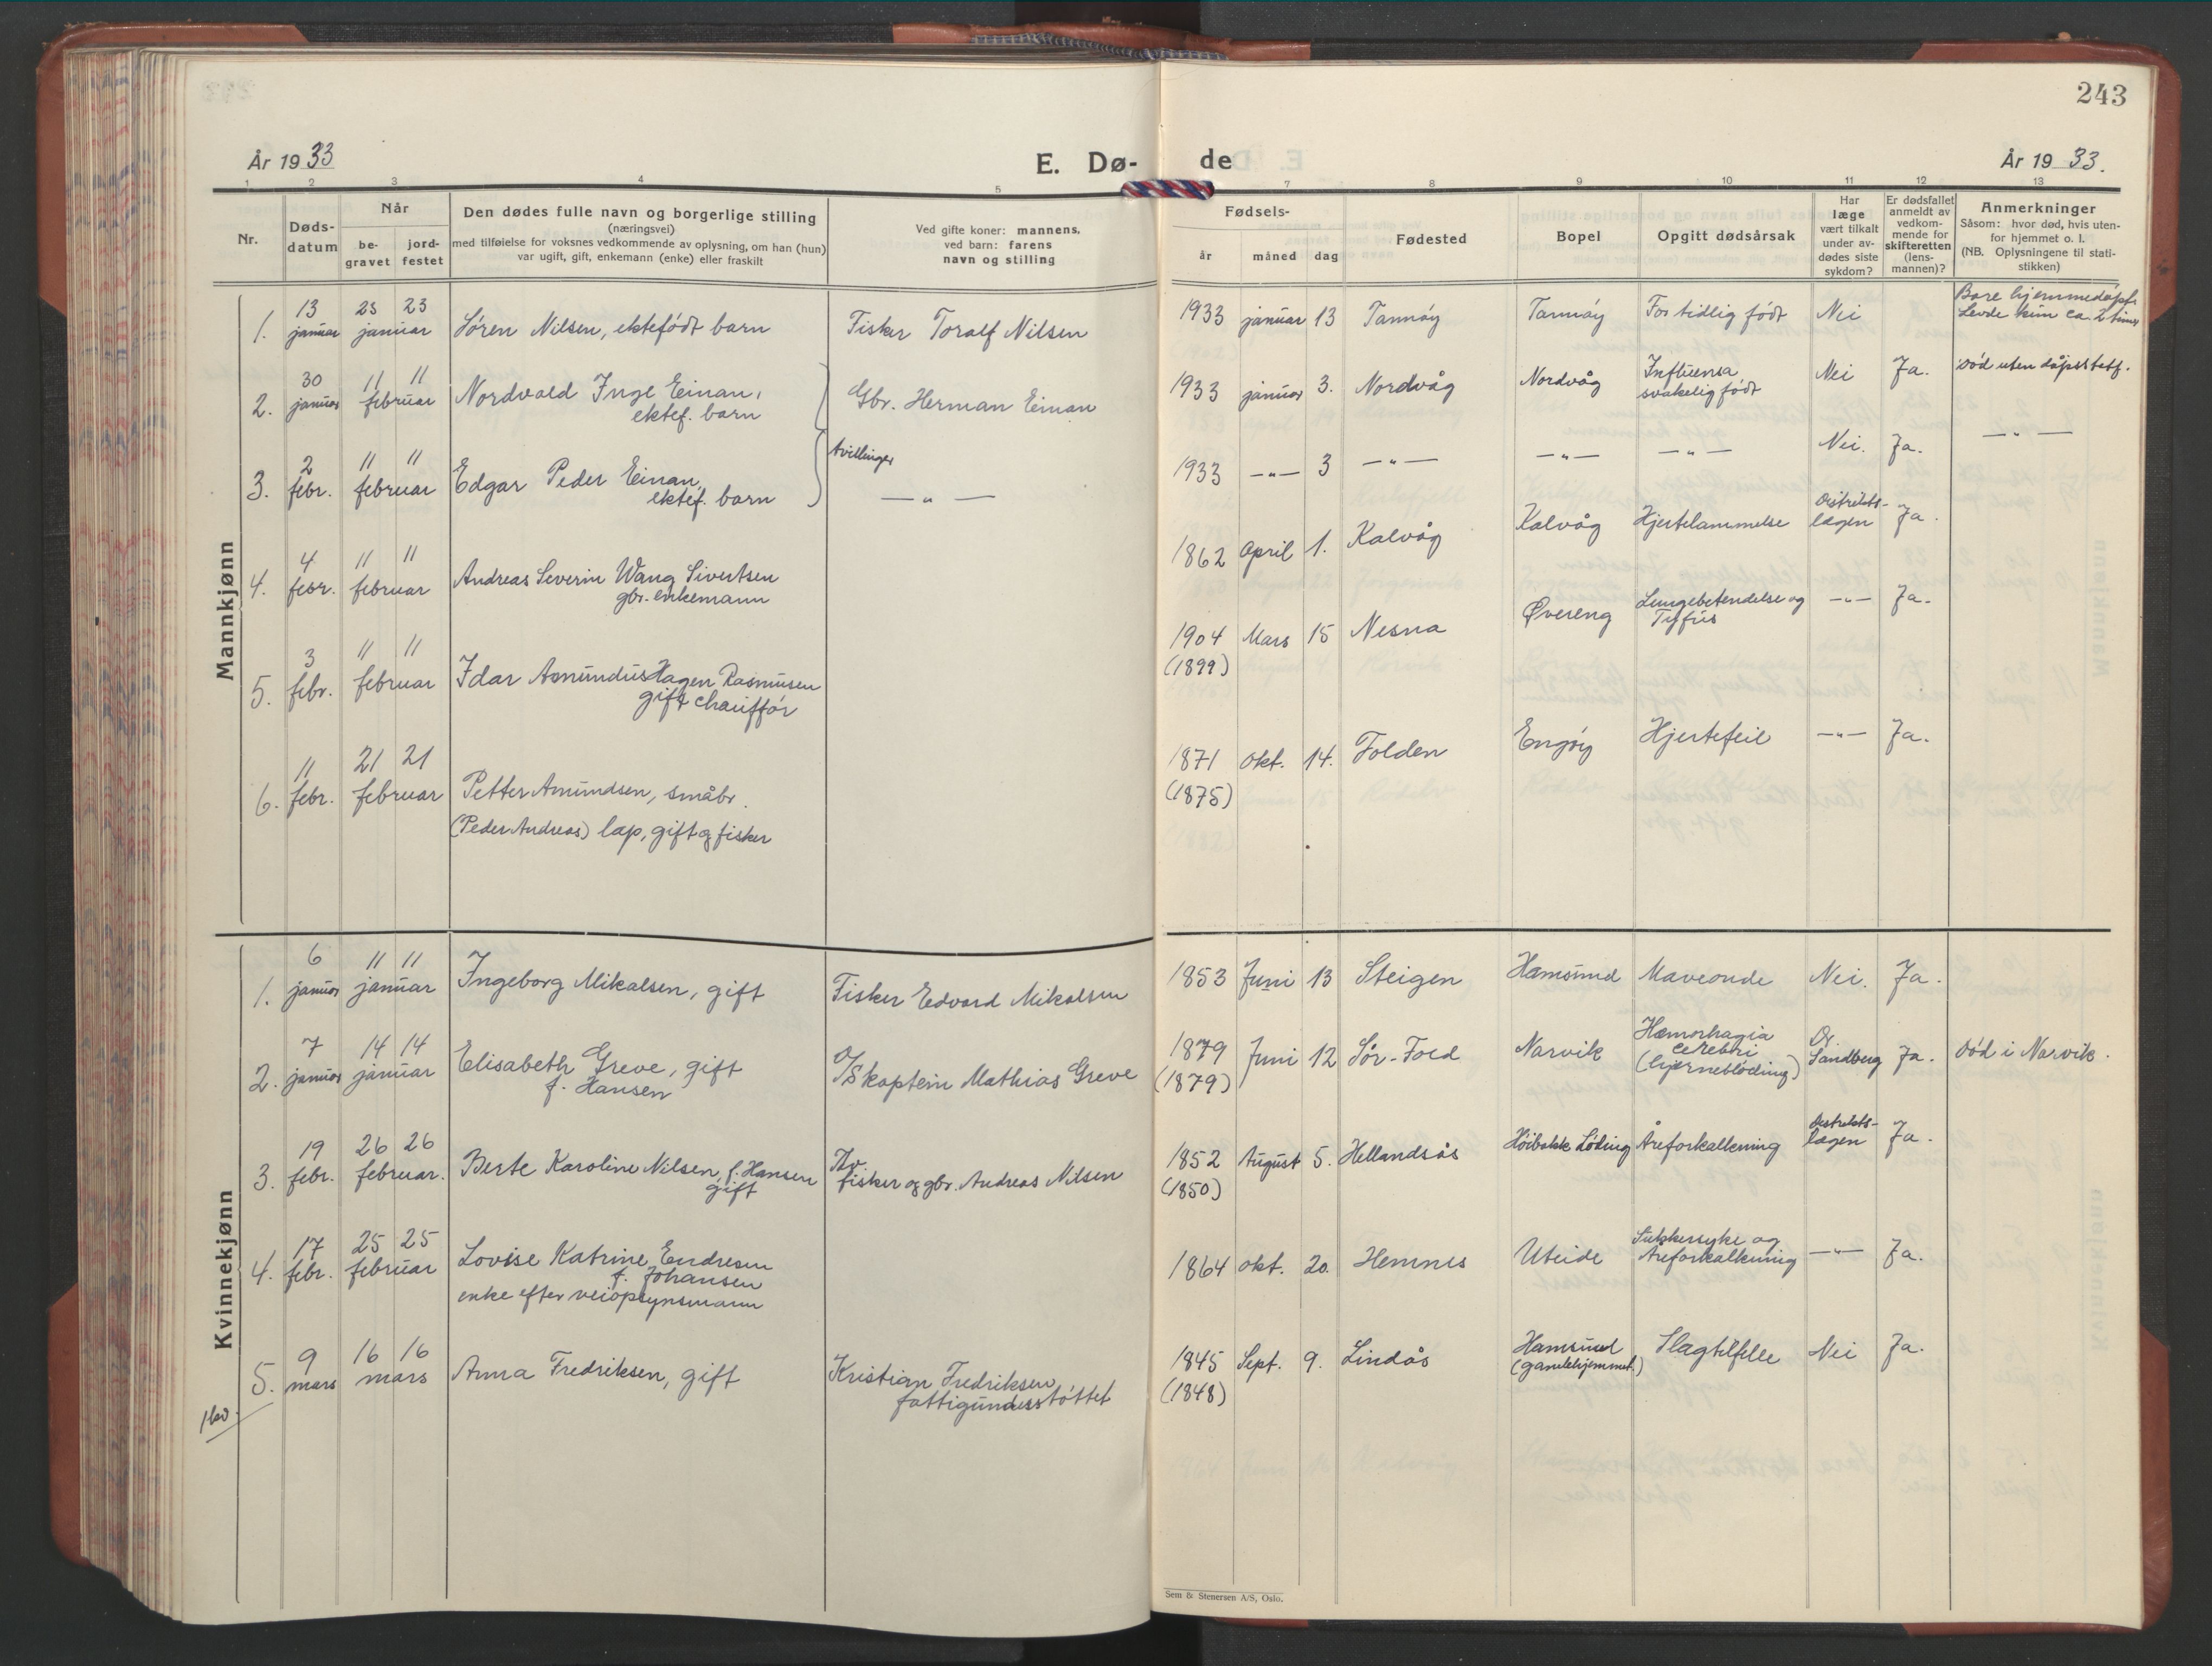 243
År 1933
E. Dø-
de
År 1933.
1 2 3 4 5 7 8 9 10 11 12 13
Nr.
Døds-
datum
Når
be-
gravet
jord-
festet
Den dødes fulle navn og borgerlige stilling
(næringsvei)
med tilføielse for voksnes vedkommende av oplysning, om han (hun)
var ugift, gift, enkemann (enke) eller fraskilt
Ved gifte koner: mannens,
ved barn: farens
navn og stilling
Fødsels-
år måned dag
Fødested
Bopel
Opgitt dødsårsak
Har
læge
vært tilkalt
under av-
dødes siste
sykdom?
Er dødsfallet
anmeldt av
vedkom-
mende for
skifteretten
(lens-
mannen)?
Anmerkninger
Såsom: hvor død, hvis uten-
for hjemmet o. l.
(NB. Oplysningene til stati-
stikken)
Mannkjønn
1. 13 januar 23 23 januar Søren Nilsen, ektefødt barn Fisker Toralf Nilsen 1933 januar 13 Tannøy Tannøy For tidlig født Nei
Bare hjemmedøpt.
Levde kun ca. 2 timer
2. 30 januar 11 11 februar Nordvald Inge Einan,
ektef. barn
Gbr. Herman Einan 1933 januar 3. Nordvåg Nordvåg Influensa
svakelig født
Nei Ja. Død uten dåpsattest.
3. 2 febr. 11 11 februar Edgar Peder Einan,
ektef. barn
tvillinger
— " — 1933 —"— 3 —"— —"— —"— Nei. Ja. — " —
4. 4 febr. 11 11 februar Andreas Severin Wang Sivertsen
gbr. enkemann
1862 April 1. Kalvåg Kalvåg Hjertelammelse Distrikts-
lægen Ja.
5. 3 febr. 11 11 februar Idar Amundus Hagen Rasmusen
gift chauffør
1904 Mars 15 Nesna Øvereng Lungebetendelse og
Tyfus —"— Ja.
(1899)
6. 11 febr. 21 21 februar Petter Amundsen, småbr.
(Peder Andreas) lap, gift og fisker
1871 Okt. 14. Folden Engøy Hjertefeil —"— Ja.
(1875)
Kvinnekjønn
1. 6 januar 11 11 januar Ingeborg Mikalsen, gift Fisker Edvard Mikalsen 1853 Juni 13 Steigen Hamsund Maveonde Nei. Ja.
2. 7 januar 14 14 januar Elisabeth Greve, gift
f. Hansen
D/Skaptein Mathias Greve 1879 Juni 12 Sør-Fold Narvik Hæmorhagia
cerebri
(hjerneblødning)
Dr.
Sandberg Ja. Død i Narvik.
(1879)
3. 19 febr. 26 26 februar. Berte Karoline Nilsen, f. Hansen
gift
fisker og gbr. Andreas Nilsen 1852 August 5. Hellandsås Høibakk Løding Åreforkalkning Distrikts-
lægen Ja.
(1850)
4. 17 febr. 25 25 februar Lovise Katrine Endresen
f. Johansen
enke efter veiopsynsmann
1864 Okt. 20. Hemnes Uteide Sukkersyke og
Åreforkalkning —"— Ja.
5. 9 mars 16 16 mars Anna Fredriksen, gift Kristian Fredriksen,
fattigunderstøttet
1845 Sept. 9. Lindås Hamsund
(gamlehjemmet.)
Slagtilfelle Nei Ja.
(1848)
Sem & Stenersen A/S, Oslo.